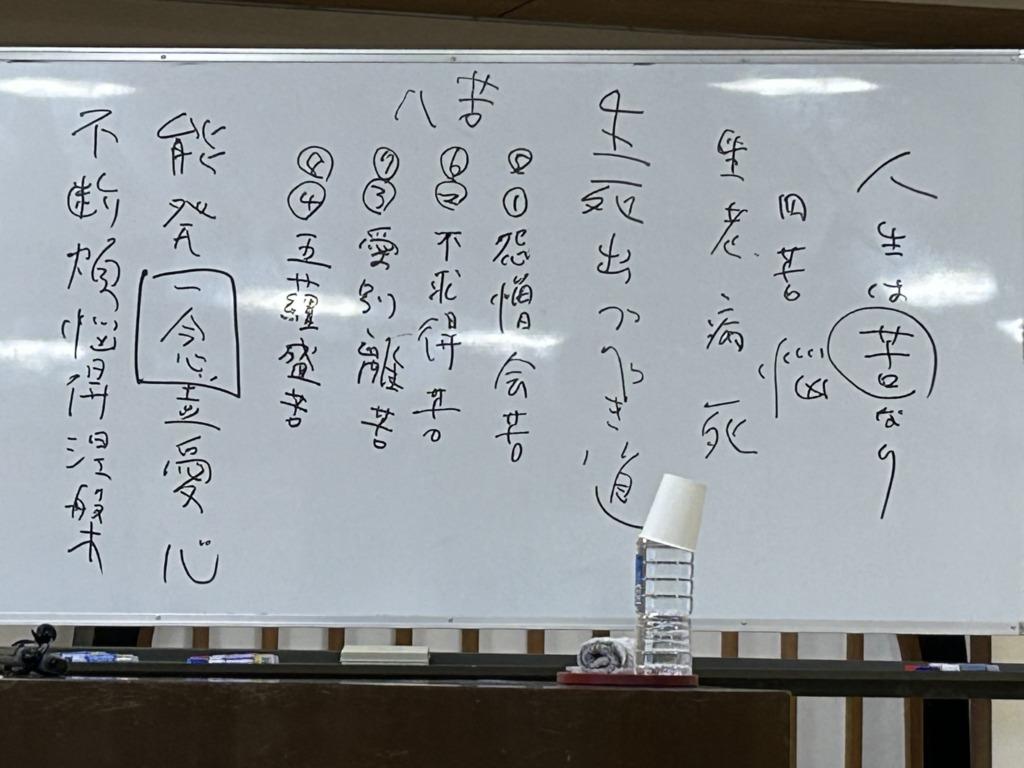 人生は苦なり
四苦
悩
生老病死
生死出づべき道
八苦
⑤①怨憎会苦
⑥②不求得苦
⑦③愛別離苦
⑧④五蘊盛苦
能発一念喜愛心
不断煩悩得涅槃